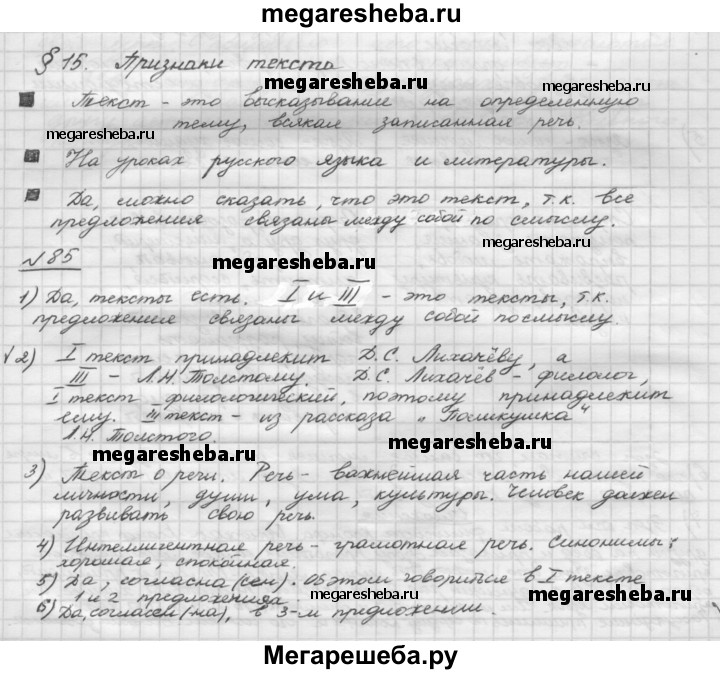 megaresheba.ru
§ 15. Признаки текста
megaresheba.ru
Текст - это высказывание на определенную
megaresheba.ru
тему, всякая записанная речь.
На уроках русского языка и литературы.
megaresheba.ru
Да, можно сказать, что это текст, т.к. все
предложения связаны между собой по смыслу.
megaresheba.ru
№85
megaresheba.ru
1) Да, тексты есть. I и III - это тексты, т.к.
предложения связаны между собой по смыслу.
2) I текст принадлежит Д.С. Лихачёву, а
III - Л.Н. Толстому. Д.С. Лихачёв - филолог,
I текст - филологический, поэтому принадлежит
ему. III текст - из рассказа "
Л.Н. Толстого.
megaresheba.ru
3) Текст о речи. Речь - важнейшая часть нашей
личности, души, ума, культуры. Человек должен
развивать свою речь.
megaresheba.ru
4) Интеллигентная речь - грамотная речь. Синонимы:
хорошая, спокойная.
5) Да, согласна(сен). Об этом говорится в I тексте
1 и 2 предложения.
megaresheba.ru
6) Да, согласен(на), в 3-м предложении.
Мегарешеба.ру